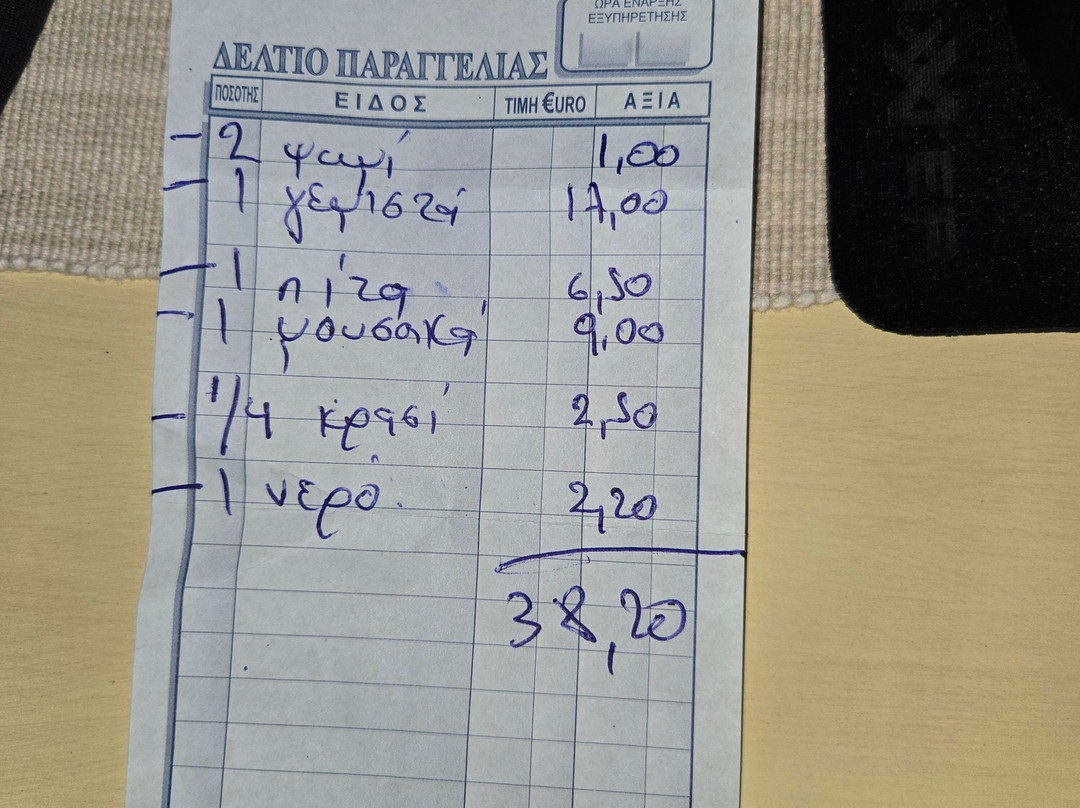 ΩΡΑ ΕΝΑΡΞΗΣ
ΕΞΥΠΗΡΕΤΗΣΗΣ
ΔΕΛΤΙΟ ΠΑΡΑΓΓΕΛΙΑΣ
ΠΟΣΟΤΗΣ ΕΙΔΟΣ ΤΙΜΗ €URO ΑΞΙΑ
2 ψωμί 1,00
1 γεμιστά 17,00
1 πίτα 6,50
1 μουσακά 9,00
1/4 κρασί 2,50
1 νερό. 2,20
38,20